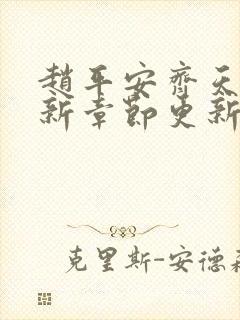 趙平安齊天
新章節更新
克里斯-安德森